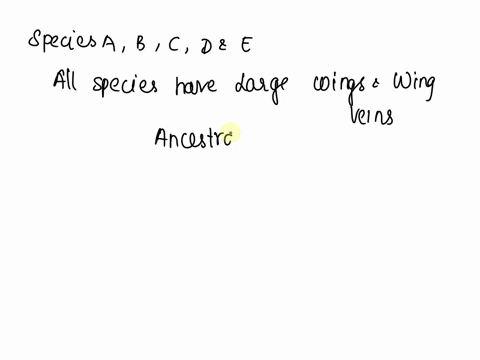 Species A, B, C, D & E
All species have Large wings & Wing
veins
Ancestra